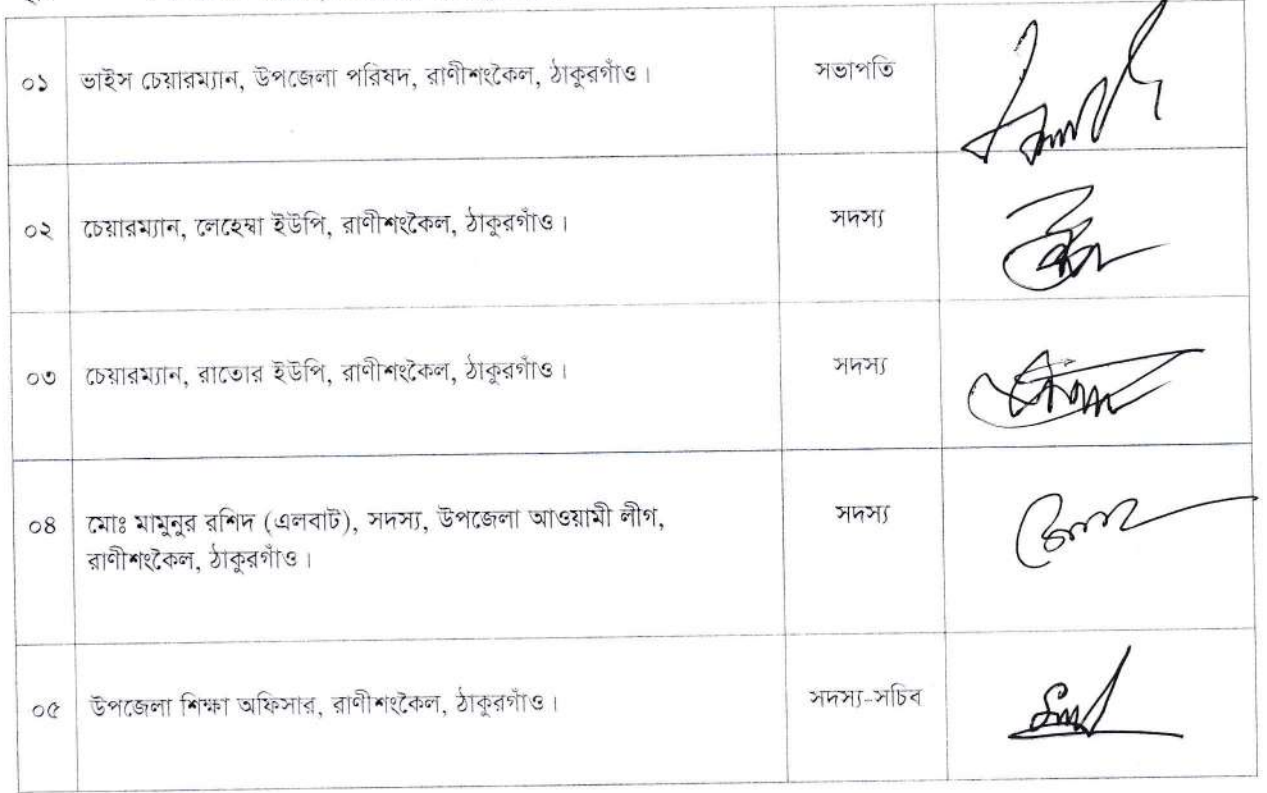 ০১ ভাইস চেয়ারম্যান, উপজেলা পরিষদ, রাণীশংকৈল, ঠাকুরগাঁও। সভাপতি
০২ চেয়ারম্যান, লেহেম্বা ইউপি, রাণীশংকৈল, ঠাকুরগাঁও। সদস্য
০৩ চেয়ারম্যান, রাতোর ইউপি, রাণীশংকৈল, ঠাকুরগাঁও। সদস্য
০৪ মোঃ মামুনুর রশিদ (এলবার্ট), সদস্য, উপজেলা আওয়ামী লীগ, সদস্য
রাণীশংকৈল, ঠাকুরগাঁও।
০৫ উপজেলা শিক্ষা অফিসার, রাণীশংকৈল, ঠাকুরগাঁও। সদস্য-সচিব